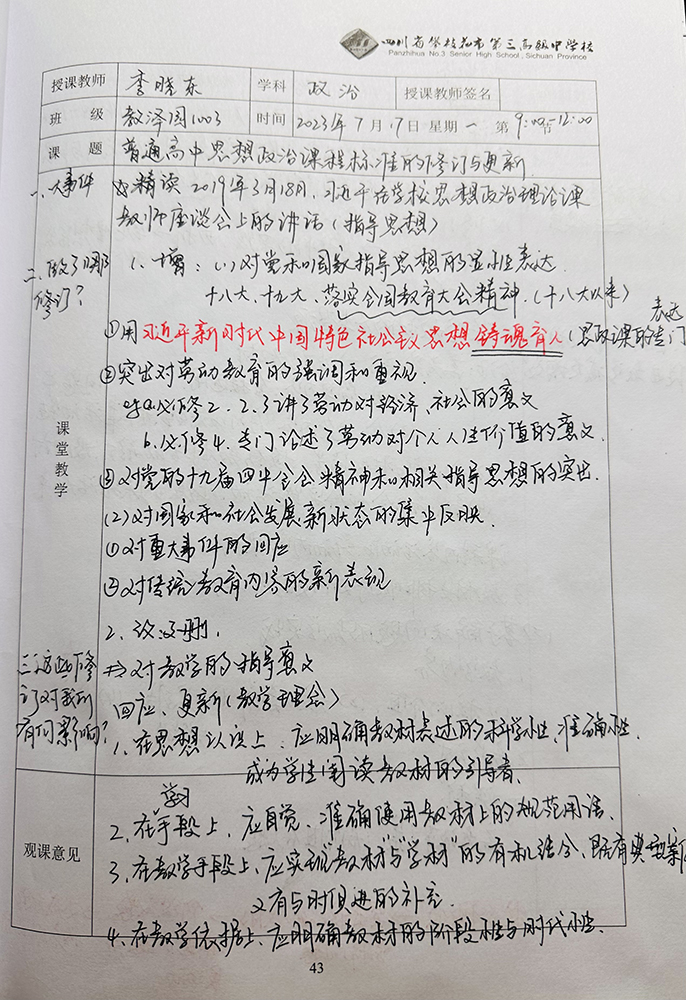 四川省攀枝花市第三高级中学校
Panzhihua No.3 Senior High School, Sichuan Province
授课教师 李晓东 学科 政治 授课教师签名
班级 教泽园1003 时间 2023年7月17日 星期一 第9:00-12:00节
课题 普通高中思想政治课程标准的修订与更新
一、大事件 精读2019年3月18日,习近平在学校思想政治理论课
教师座谈会上的讲话(指导思想)
二、做了哪些修订? 1、增:(1)对党和国家指导思想的显性表达
十八大、十九大、落实全国教育大会精神.(十八大以来)
①用习近平新时代中国特色社会主义思想铸魂育人(思政课的专门表达
②突出对劳动教育的强调和重视.
eg a.必修2.2.3讲了劳动对经济、社会的意义
b.必修4.专门论述了劳动对个人人生价值的意义.
课堂教学
③对党的十九届四中全会精神和相关指导思想的突出.
(2)对国家和社会发展新状态的集中反映.
①对重大事件的回应
②对传统教育内容的新表现
2、改:3、删.
三、这些修订对我们有何影响? ⇒对教学的指导意义
回应、更新(教学理念)
1、在思想认识上,应明确教材表述的科学性、准确性.
成为学生阅读教材的引导者.
观课意见
2、在学习手段上,应自觉、准确使用教材上的规范用语.
3、在教学手段上,应实现"教材"与"学材"的有机结合,既有典型新
又有与时俱进的补充.
4、在教学依据上,应明确教材的阶段性与时代性.
43